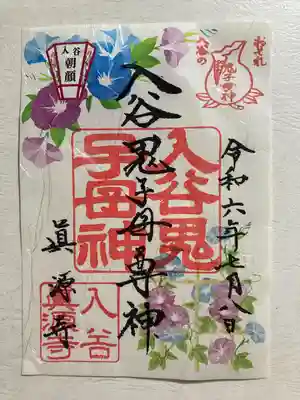 おそれ
入谷の
鬼子母神
入谷
朝顔
令和六年七月八日
入谷鬼子母尊神
眞源寺
入谷鬼
子母神
入谷
眞源寺